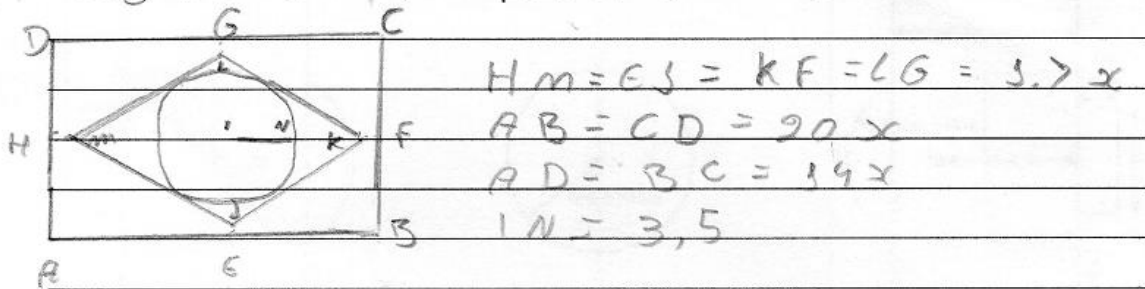 D G C
L
H M I N K F
J
A E B
HM = EJ = KF = LG = 1.7 x
AB = CD = 20 x
AD = BC = 14 x
IN = 3,5